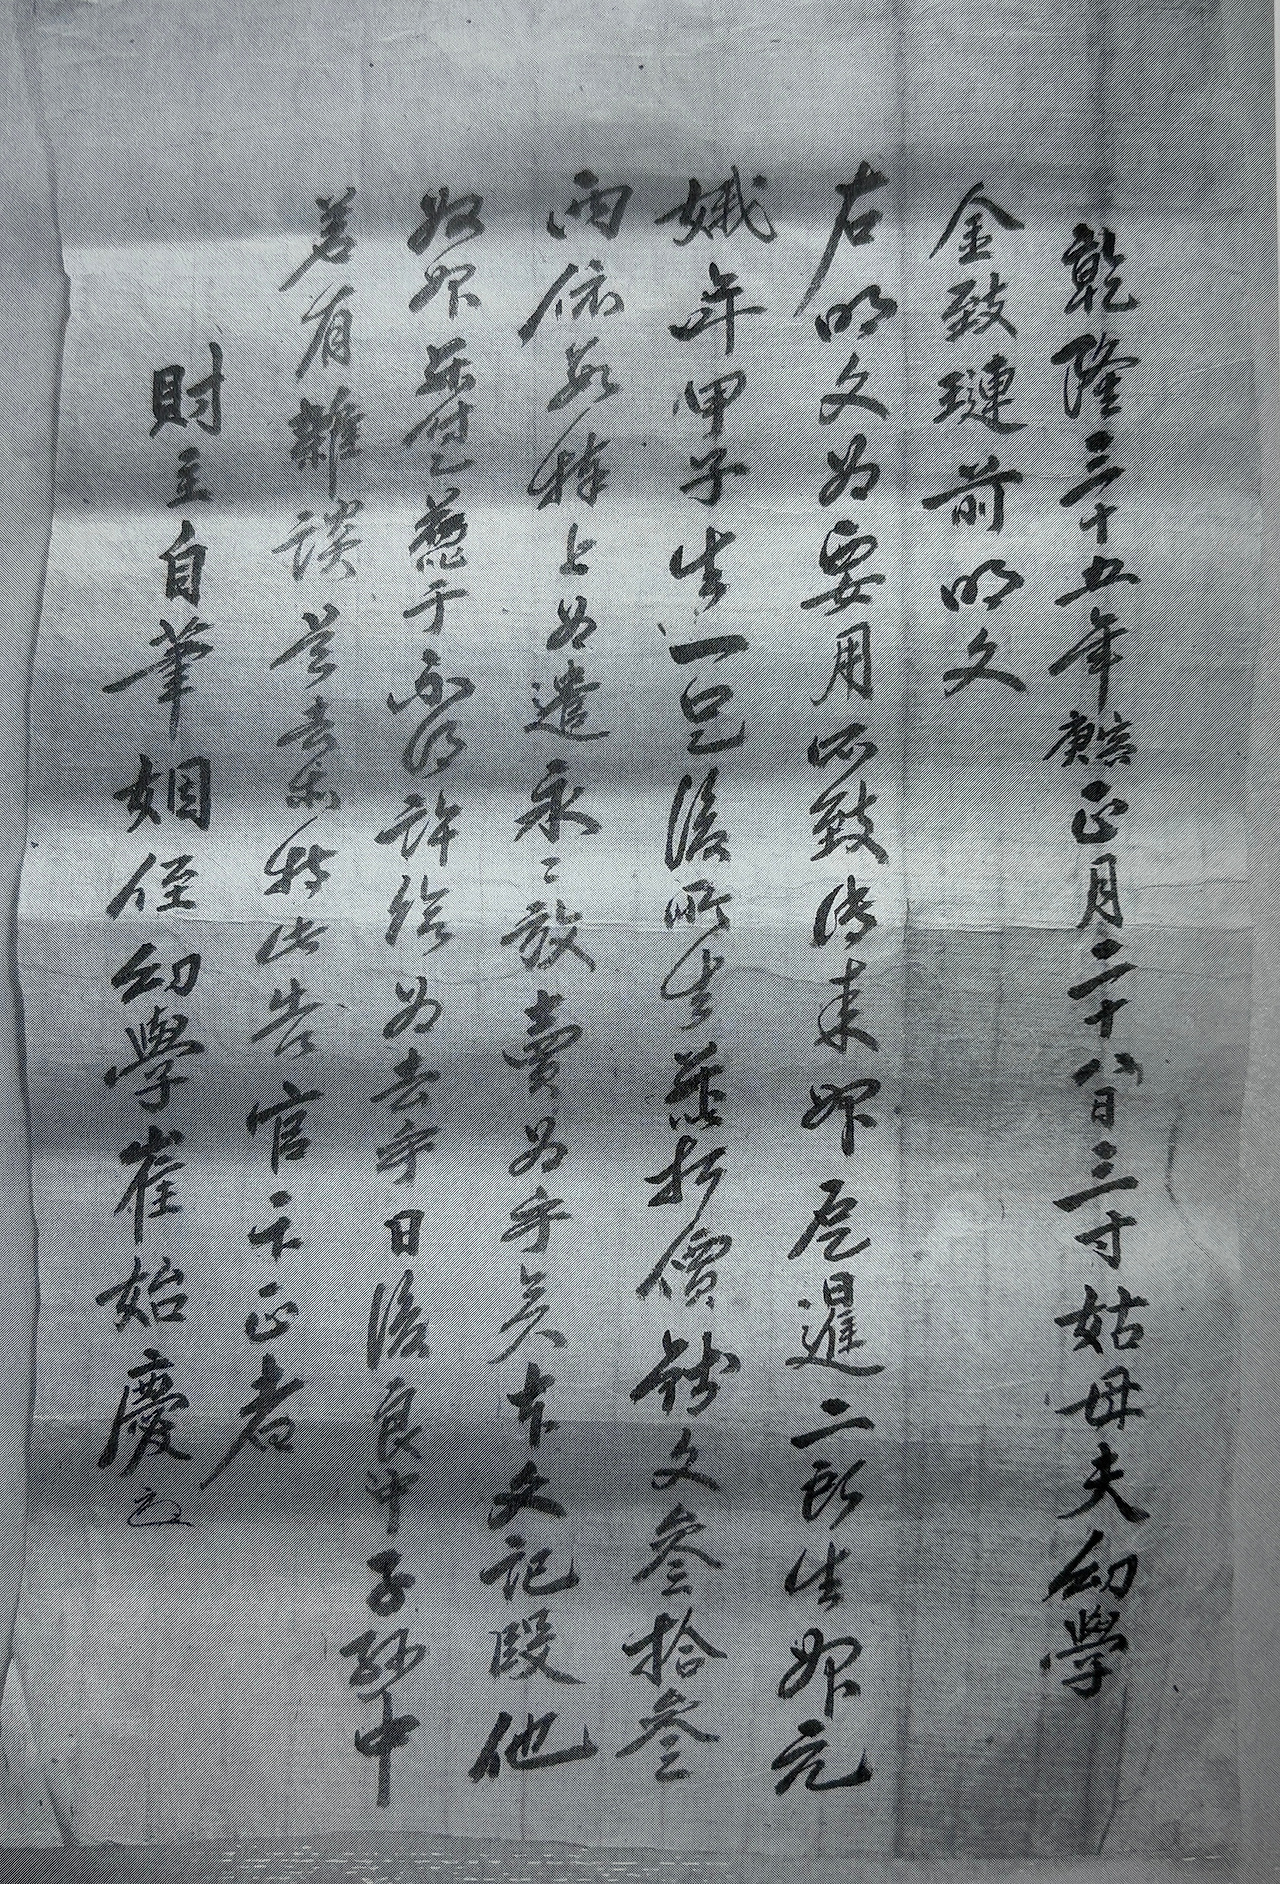 乾隆三十五年庚寅正月二十八日三寸姑母夫幼學
金致璉前明文
右明文爲要用所致傳來婢戹暹二所生婢元
娥年甲子生一口後所生幷以折價錢文參拾參
兩依數捧上爲遣永ミ放賣爲乎矣本文記段他
奴婢幷付乙仍于不得許給爲去乎日後良中子孫中
若有雜談是去等持此告官卞正者
財主自筆姻侄幼學崔始慶